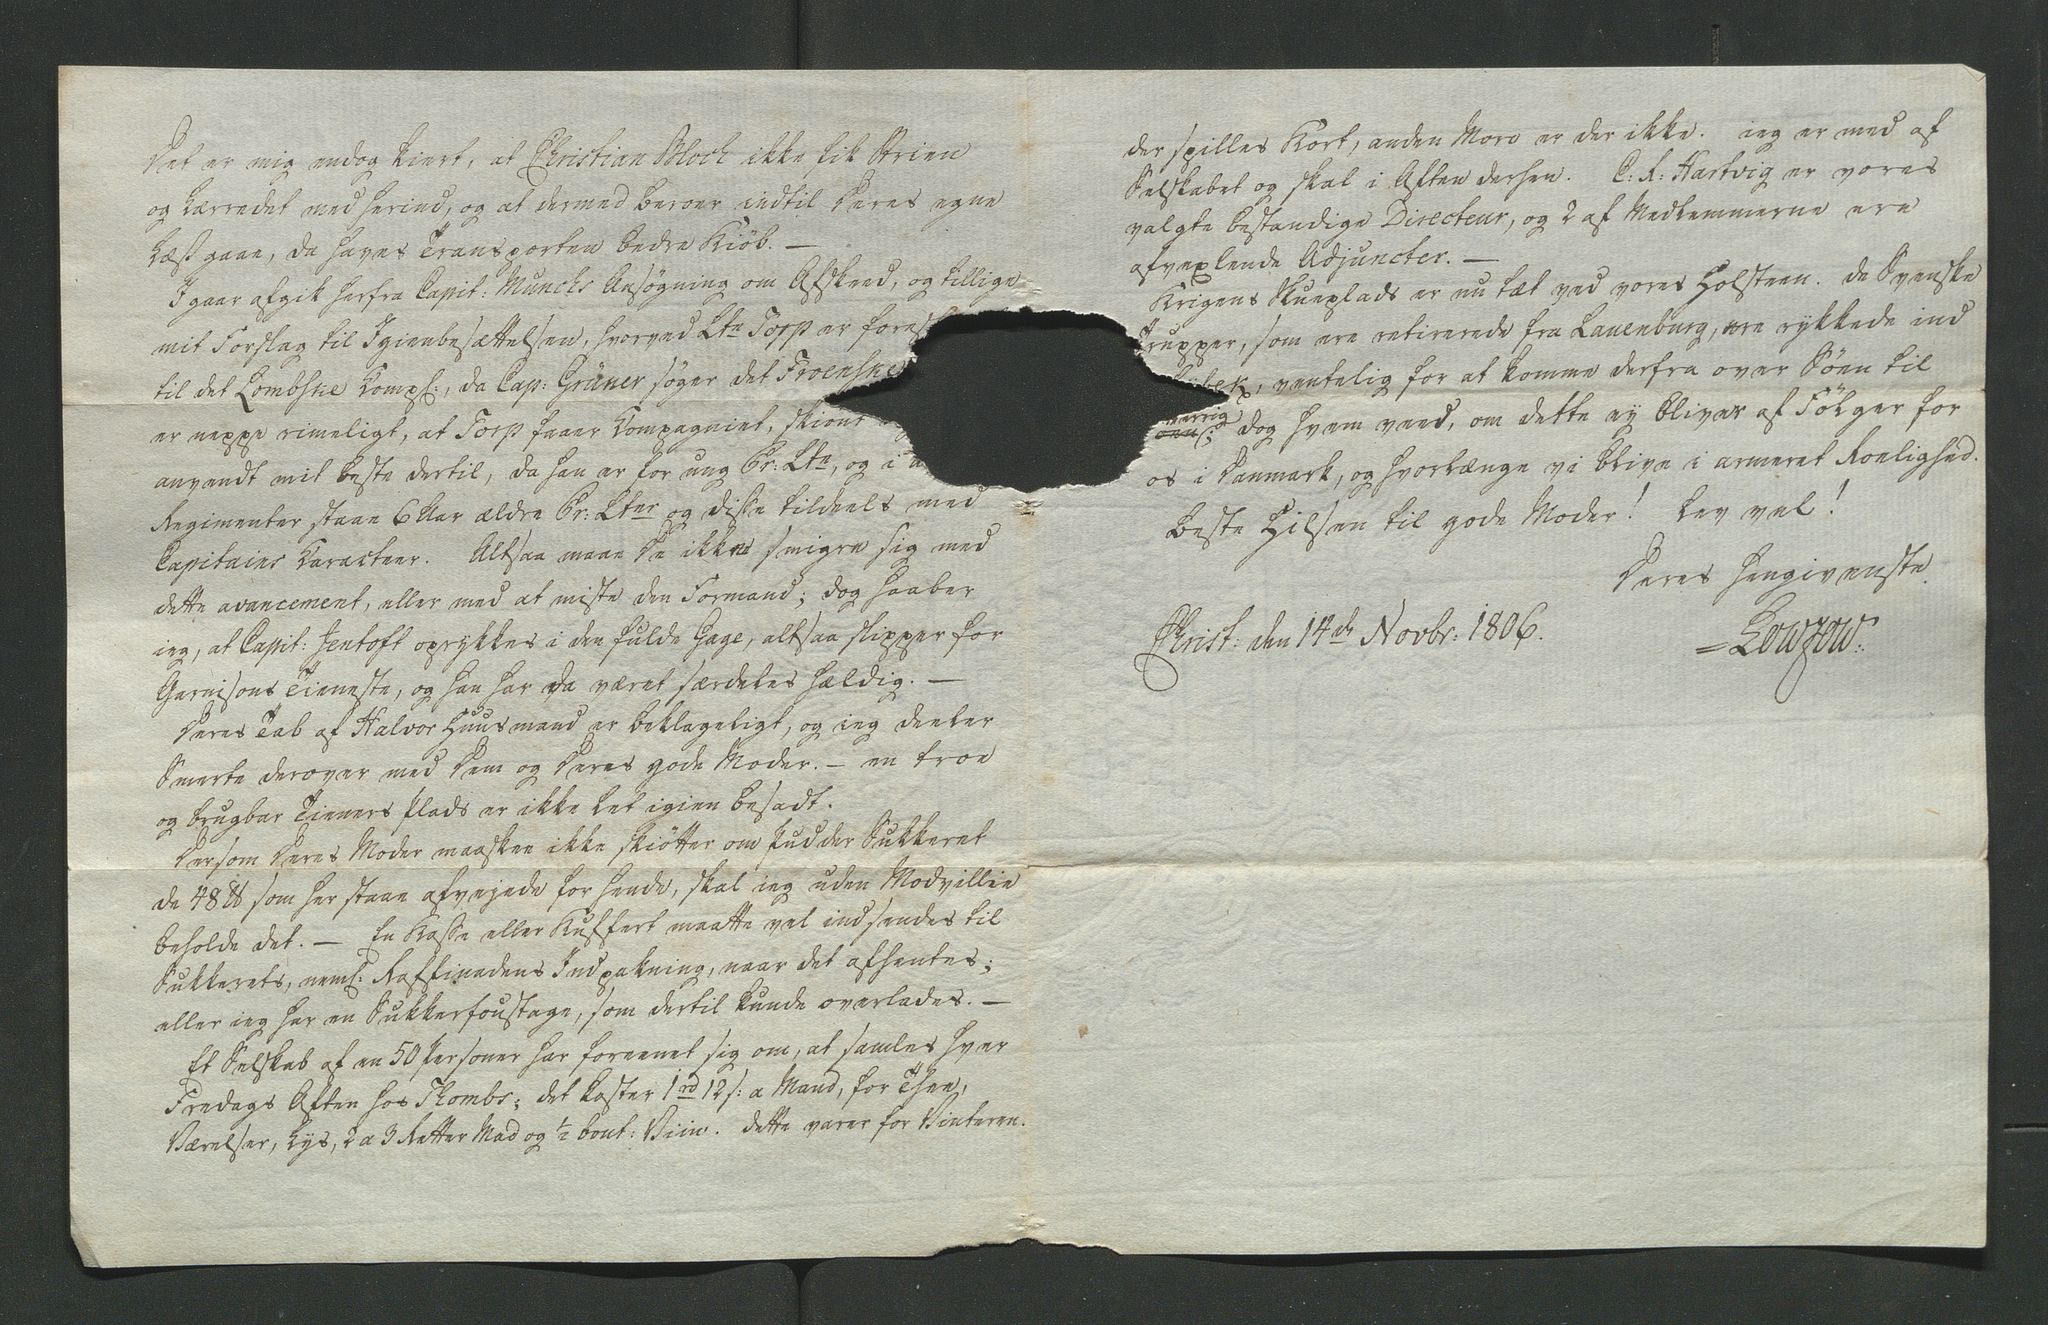 Det er mig endog kiert, at Christian Bloch ikke fik Strien
og Lærredet med herind, og at dermed beroer indtil Deres egne
Læss gaae, da haves Transporten bedre Kiöb. —
I gaar afgik herfra Capit: Munchs Ansögning om Afskeed, og tillige
mit Forslag til Igienbesættelsen, hvorved Ltn Torp er
til det Lombske Comp:, da Cap: Grüner söger det Froenske
er neppe rimeligt, at Torp faaer Compagniet, skiönt
anvendt mit beste dertil, da han er for ung Pr: Ltn, og i
Regimenter staae 6 Aar ældre Pr: Ltnr og disse tildeels med
Capitains Caracteer. Altsaa maae De ikke smigre sig med
dette avancement, eller med at miste den Formand; dog haaber
ieg, at Capit: Jentoft oprykkes i den fulde Gage, altsaa slipper for
Garnisons Tieneste, og han har da været særdeles hældig. —
Deres Tab af Halvor Huusmand er beklageligt, og ieg deeler
Smerte derover med Dem og Deres gode Moder. — en troe
og brugbar Tieners Plads er ikke let igien besadt.
Dersom Deres Moder maaskee ikke skiötter om Pudder Sukkeret
de 48 ℔ som her staae afvejede for hende, skal ieg uden Modvillie
beholde det. — En Kasse eller Kuffert maatte vel indsendes til
Sukkerets, neml: Raffinadens Indpakning, naar det afhentes;
eller ieg har en Sukkerfoustage, som dertil kunde overlades. —
Et Selskab af en 50 Personer har foreenet sig om, at samles hver
Fredags Aften hos Thombs; det koster 1 rd 12 s: a Mand, for Thee,
Værelser, Lys, 2 a 3 Retter Mad og ½ bout: Viin. dette varer for Vinteren.
der spilles Kort, anden Moro er der ikke. ieg er med af
Selskabet og skal i Aften derhen. C: R: Hartvig er vores
valgte bestandige Directeur, og 2 af Medlemmerne ere
afvexlende Adjuncter. —
Krigens Skueplads er nu tæt ved vores Holsteen. de Svenske
Trupper, som ere retirerede fra Lauenburg, ere rykkede ind
ventelig for at komme derfra over Söen til
dog hvem veed, om dette ey bliver af Fölger for
os i Danmark, og hvorlænge vi blive i armeret Roelighed.
Beste Hilsen til gode Moder! Lev vel!
Deres hengivenste
Christ: den 14de Novbr: 1806.
Lowzow.